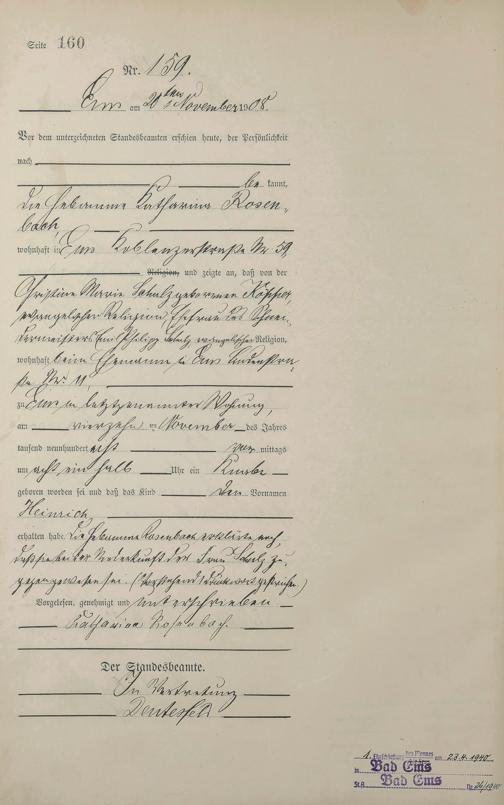 Seite 160
Nr. 159.
Ems am 20ten November 1908.
Vor dem unterzeichneten Standesbeamten erschien heute, der Persönlichkeit
nach
be kannt,
die Hebamme Katharina Rosen-
bach,
wohnhaft in Ems Koblenzerstraße Nr. 39,
Religion, und zeigte an, daß von der
Christine Marie Schulz geborenen
evangelischer Religion, Ehefrau des Schnei-
dermeisters Philipp Schulz evangelischer Religion,
wohnhaft beim Ehemanne in Ems Lindenstra-
ße Nr. 11,
zu Ems in letztgenannter Wohnung,
am vierzehn ten November des Jahres
tausend neunhundert acht vor mittags
um acht ein halb Uhr ein Knabe
geboren worden sei und daß das Kind den Vornamen
Heinrich
erhalten habe. Die Hebamme Rosenbach erklärte noch,
daß sie bei der Niederkunft der Frau Schulz zu-
gegen gewesen sei. (Vorstehend Druckwort gestrichen)
Vorgelesen, genehmigt und unterschrieben
Katharina Rosenbach.
Der Standesbeamte.
In Vertretung
1. Eheschließung des Mannes am 23.4.1940
in Bad Ems
St.A. Bad Ems Nr. 26/1940